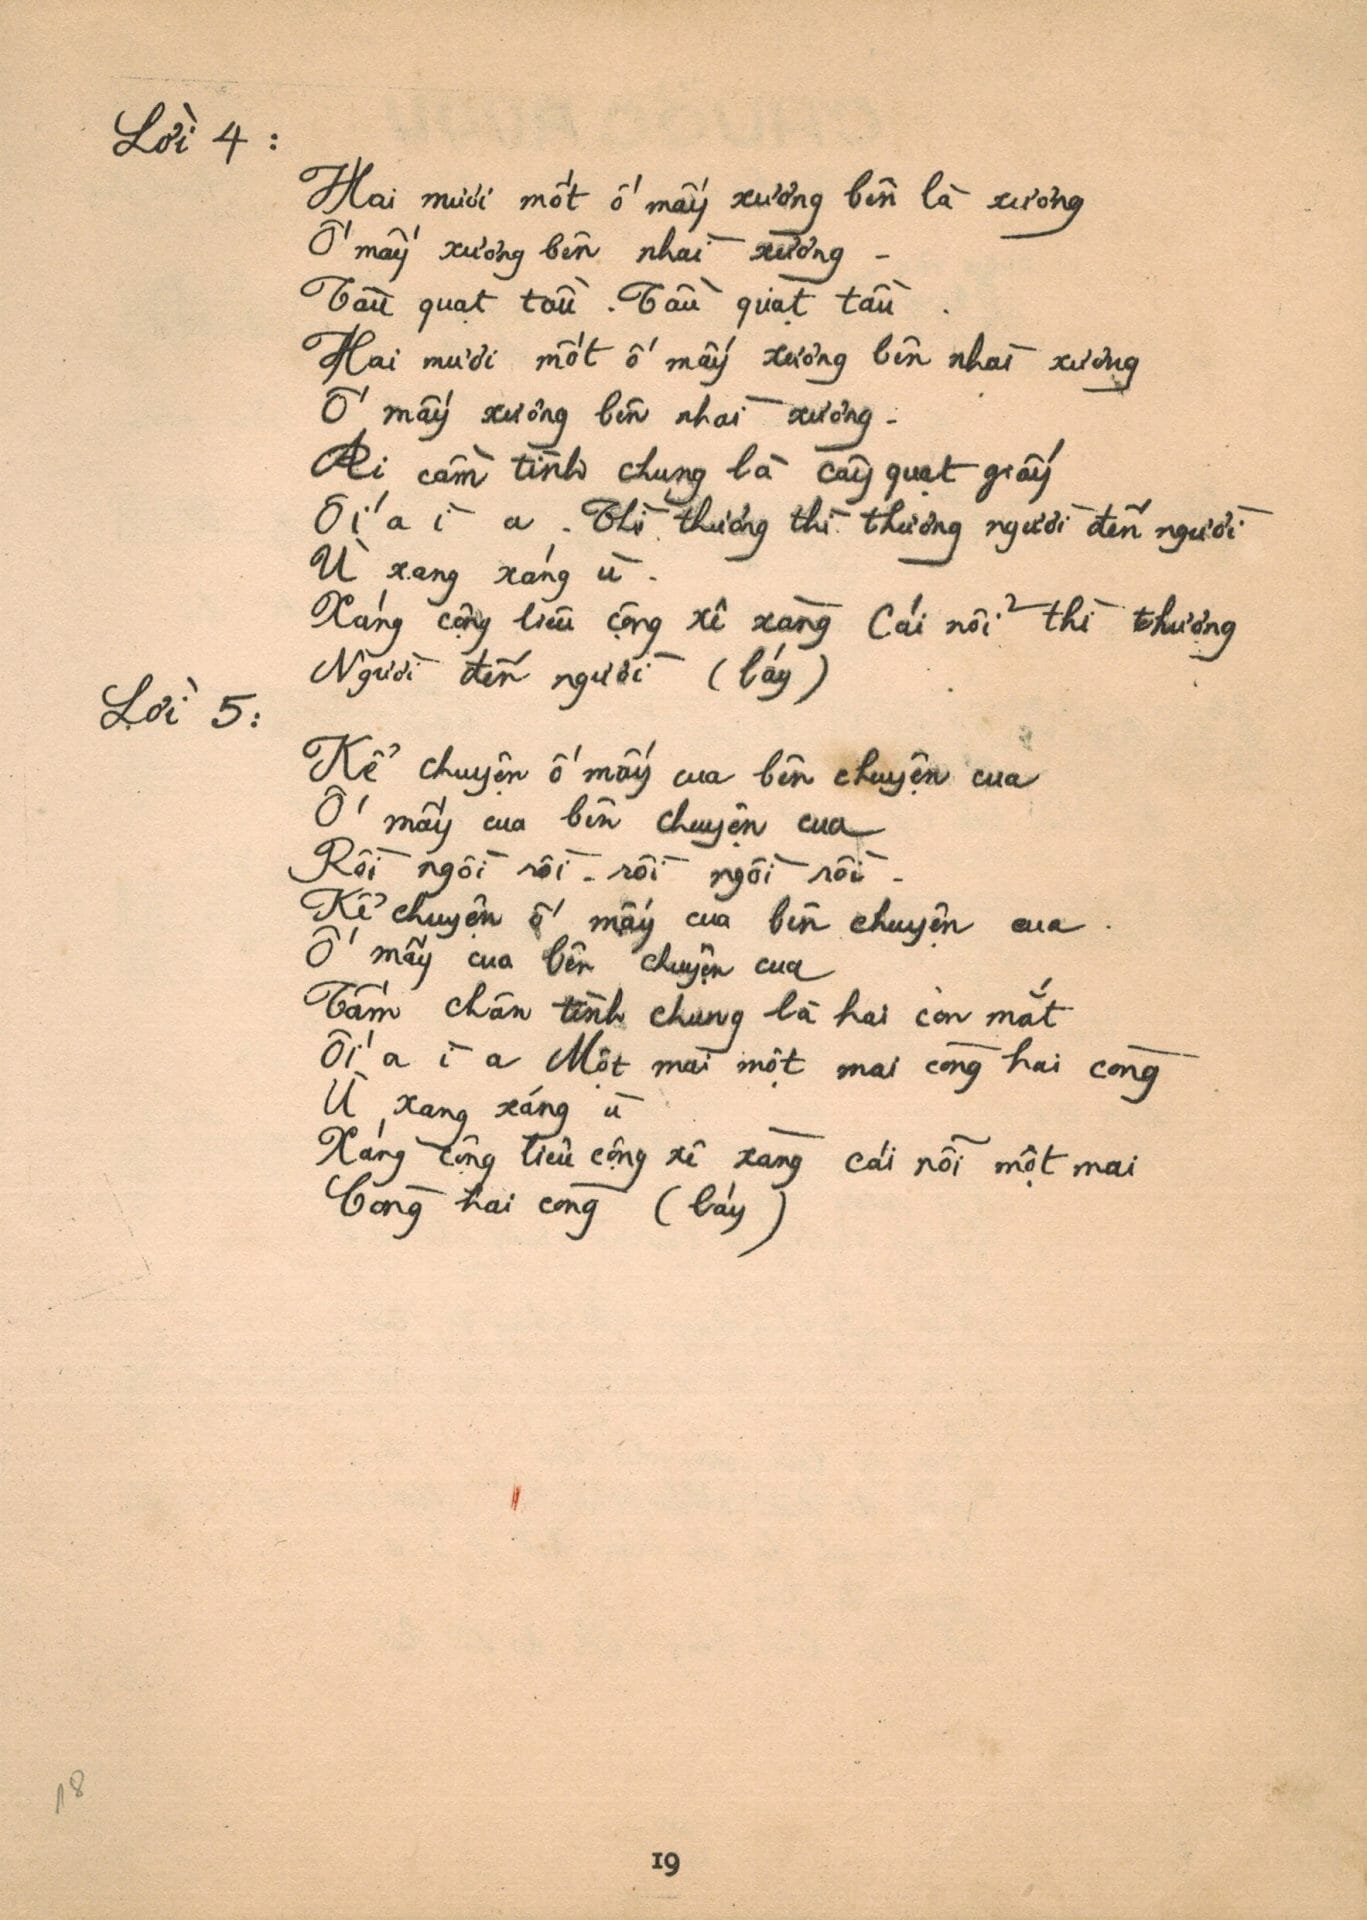 Lời 4 :
Hai mươi mốt ố mấy xương bên là xương
Ố mấy xương bên nhài xương -
Tầu quạt tầu . Tầu quạt tầu .
Hai mươi mốt ố mấy xương bên nhài xương
Ố mấy xương bên nhài xương -
Ai cầm tình chung là cây quạt giấy
Ối a ì a . Thì thương thì thương người đến người
Ù xang xáng ù .
Xáng cộng liêu cộng xê xàng Cái nỗi thì thương
Người đến người ( láy )
Lời 5 :
Kể chuyện ố mấy cua bên chuyện cua
Ố mấy cua bên chuyện cua
Rồi ngồi rồi - rồi ngồi rồi -
Kể chuyện ố mấy cua bên chuyện cua .
Ố mấy cua bên chuyện cua
Tám chân tình chung là hai con mắt
Ối a ì a Một mai một mai còng hai còng
Ù xang xáng ù
Xáng cộng liêu cộng xê xàng cái nỗi một mai
Còng hai còng ( láy )
18
19